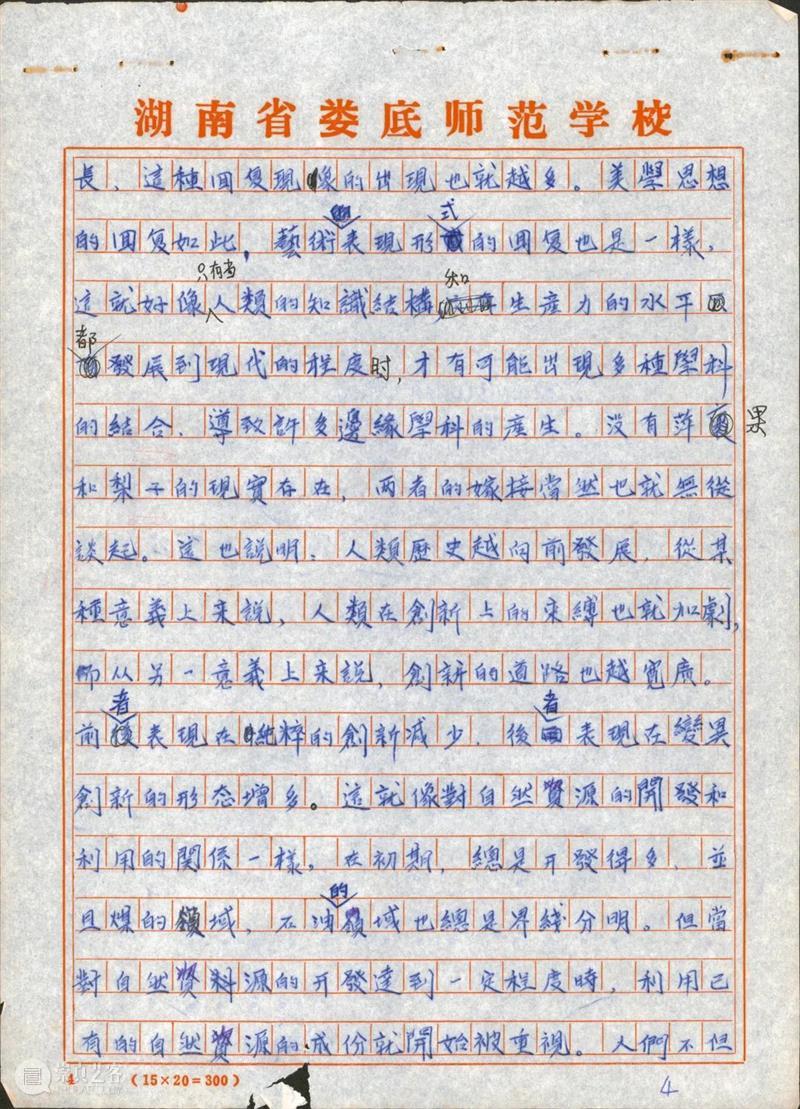 湖南省娄底师范学校
長，這種回复現像的出現也就越多。美學思想
的回复如此，藝術的表現形式的回复也是一樣，
這就好像只有当人類的知識結構和生產力的水平
都發展到現代的程度时，才有可能出現多種學科
的結合，導致許多邊緣學科的產生。没有苹果
和梨子的現實存在，兩者的嫁接當然也就無從
談起。這也説明，人類歷史越向前發展，從某
種意義上来説，人類在創新上的束縛也就加劇，
而从另一意義上来説，創新的道路也越寬廣。
前者表現在純粹的創新减少，後者表現在變異
創新的形态增多。這就像對自然資源的開發和
利用的関係一樣。在初期，總是开發得多，並
且煤的領域，石油的領域也總是界綫分明。但當
對自然資料源的开發達到一定程度時，利用已
有的自然資源的成份就開始被重視。人們不但
4 (15×20=300) 4